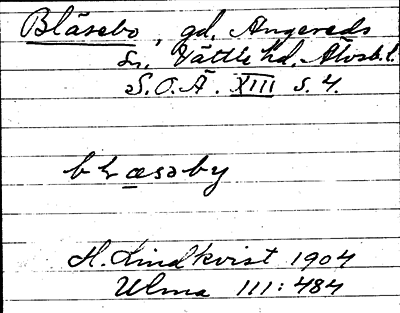 Bläsebo, gd, Angereds
sn, Vättle hd, Älvsb. l.
S.O.Ä. XIII s. 4.
bLæsəby
H. Lindkvist 1904
Ulma 111:484